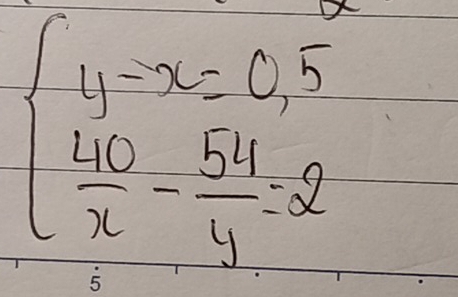 y - x = 0,5
40/x - 54/y = 2
5